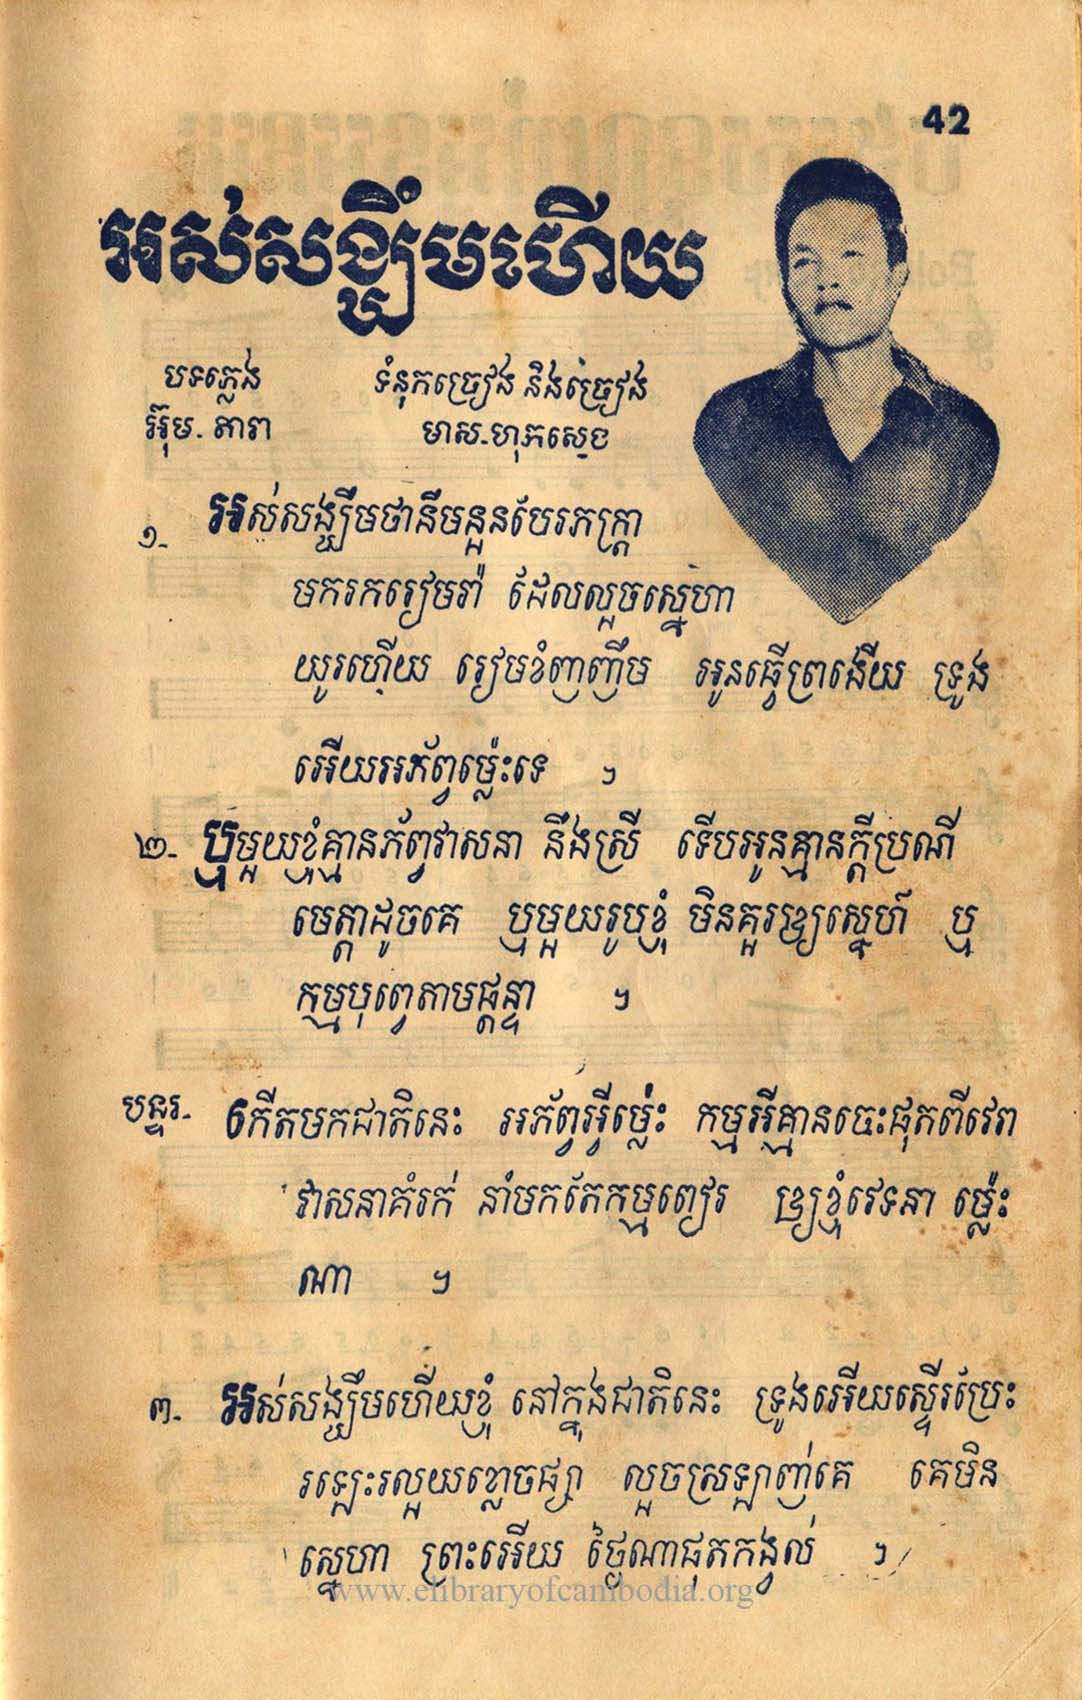 42
អស់សង្ឃឹមហើយ
បទភ្លេង ទំនុកច្រៀង និងច្រៀង
អ៊ុម. តារា មាស-ហុកសេង
១- អស់សង្ឃឹមថានឹមនួនបែរភក្ត្រា
មករករៀមរ៉ា ដែលលួចស្នេហា
យូរហើយ រៀមខំញញឹម អូនធ្វើព្រងើយ ទ្រូង
អើយអភ័ព្វម្ល៉េះទេ ។
២- ឬមួយខ្ញុំគ្មានភ័ព្វវាសនា នឹងស្រី ទើបអូនគ្មានក្ដីប្រណី
មេត្តាដូចគេ ឬមួយរូបខ្ញុំ មិនគួរឲ្យស្នេហ៍ ឬ
កម្មបុព្វេតាមផ្ដន្ទា ។
បន្ទរ- កើតមកជាតិនេះ អភ័ព្វអ្វីម្ល៉េះ កម្មអ្វីគ្មានចេះផុតពីវេរា
វាសនាគំរក់ នាំមកតែកម្មពៀរ ឲ្យខ្ញុំវេទនា ម្ល៉េះ
ណា ។
៣- អស់សង្ឃឹមហើយខ្ញុំ នៅក្នុងជាតិនេះ ទ្រូងអើយស្ទើរប្រែះ
រឡេះរលួយខ្លោចផ្សា លួចស្រឡាញ់គេ គេមិន
ស្នេហា ព្រះអើយ ថ្ងៃណាផុតកង្វល់ ។
www.elibraryofcambodia.org